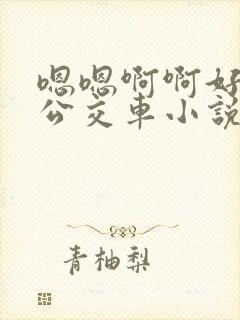 嗯嗯啊啊好
公交车小说
青柚梨